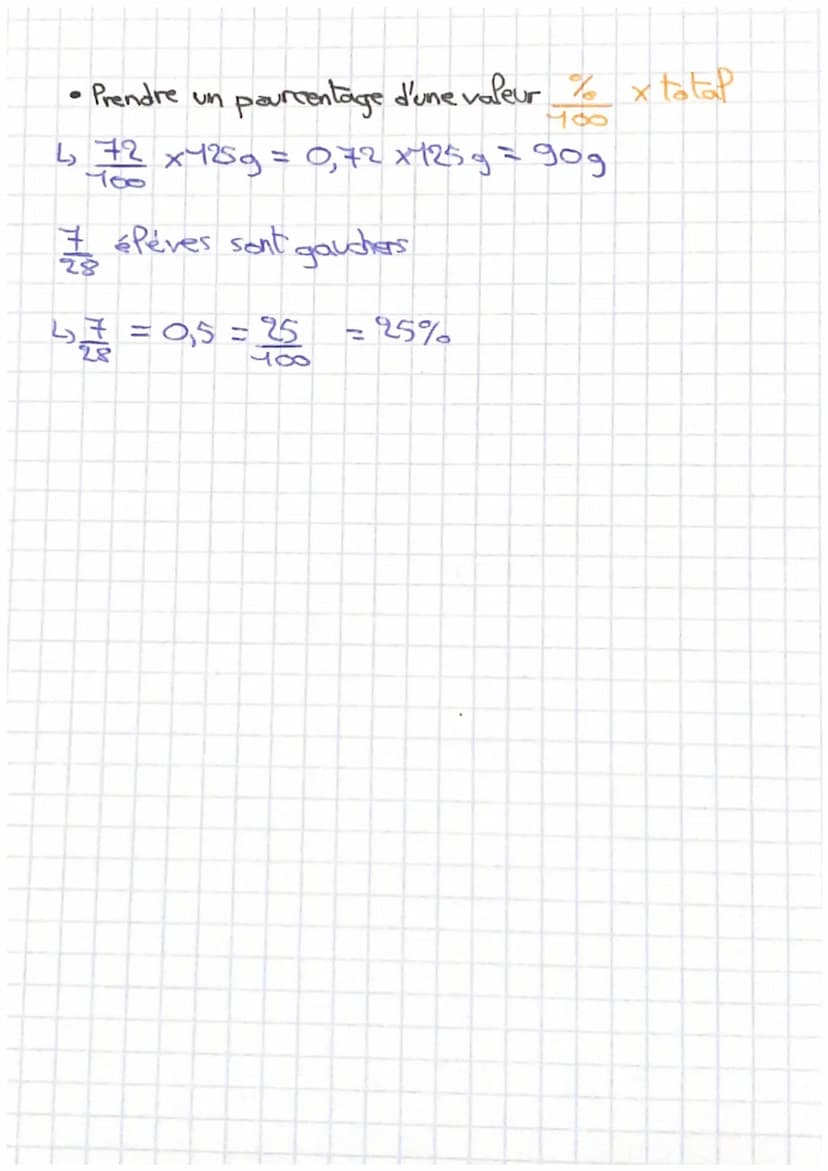 • Prendre un pourcentage d'une valeur %/100 x total
↳ 72/100 x 125g = 0,72 x 125g = 90g
7/28 élèves sont gauchers
↳ 7/28 = 0,5 = 25/100 = 25%